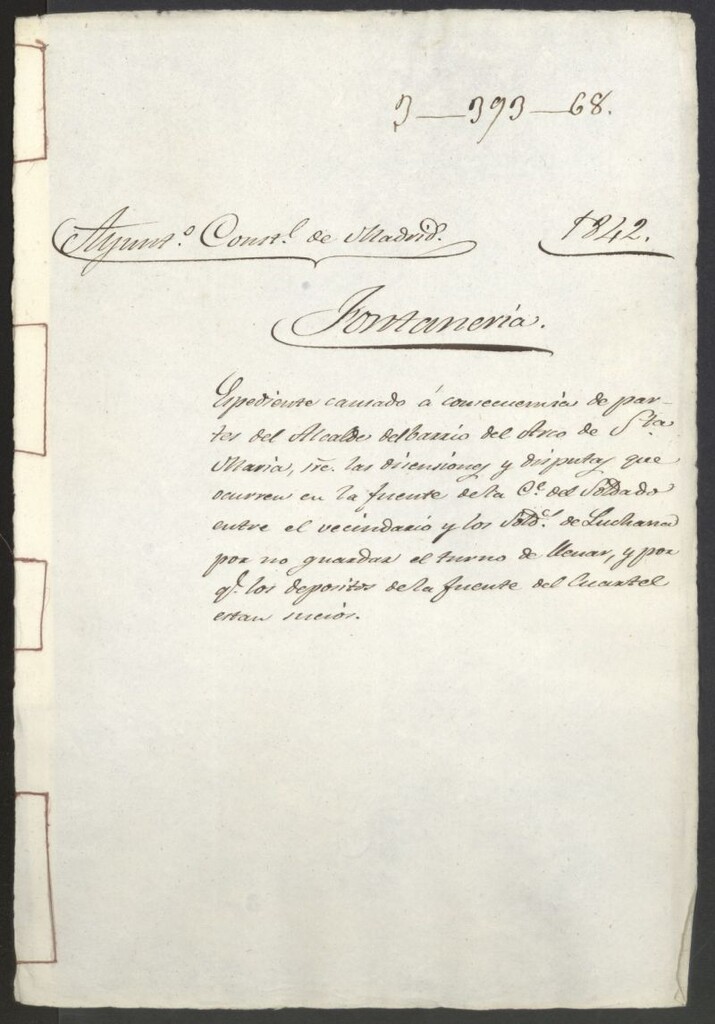 3—393—68.
Ayunt.º Const.l de Madrid. 1842.
Fontanería.
Espediente causado á consecuencia de par-
tes del Alcalde del barrio del Arco de S.ta
Maria, sre. las disensiones y disputas que
ocurren en la fuente de la C.e del Soldado
entre el vecindario y los Sold.s de Luchana
por no guardar el turno de llenar, y por
q.e los depositos de la fuente del Cuartel
estan sucios.